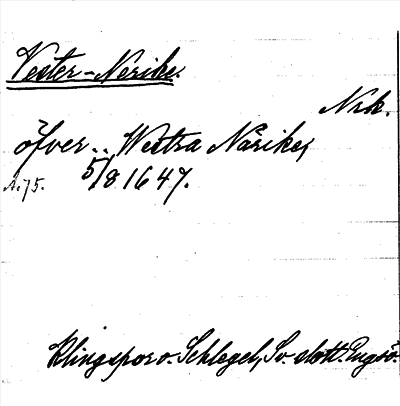 Vester-Nerike.
Nrk.
öfver .. Westra Närike,
5/8 1647.
A. 75.
Klingspor o. Schlegel, Sv. slott. Engsö.